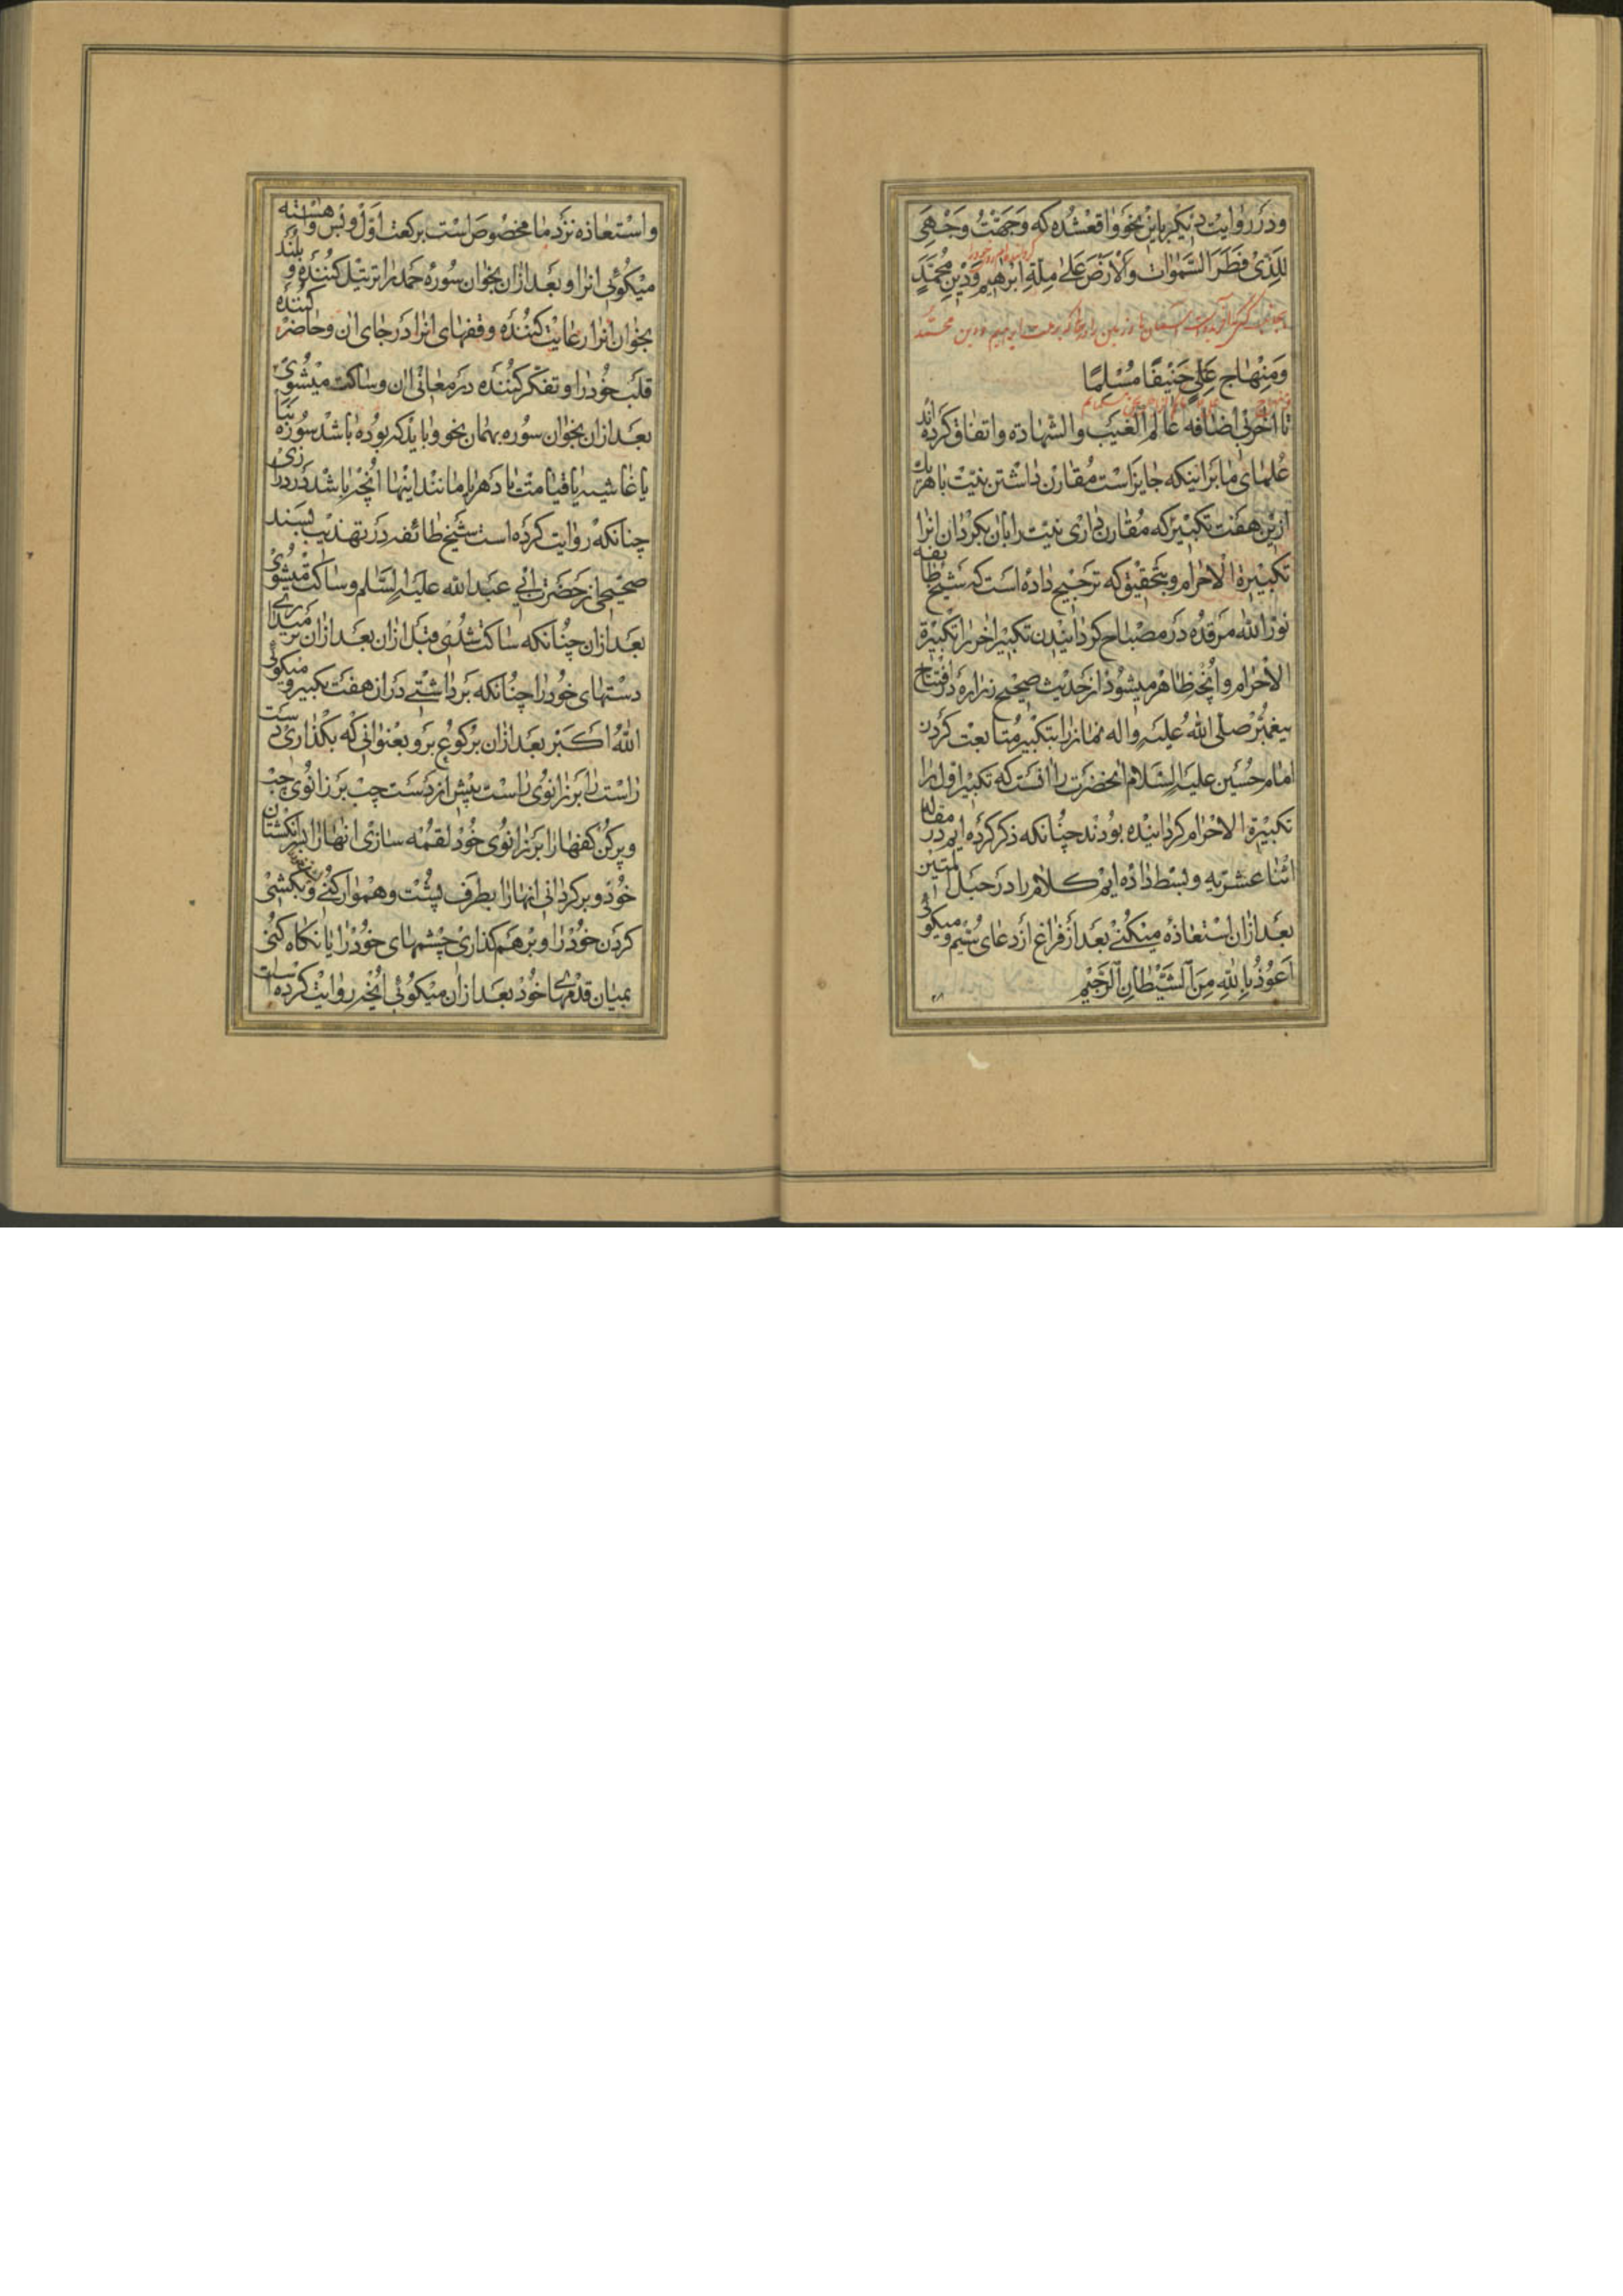 ودر روایت دیگر باین نحو واقعشده که وَجَّهْتُ وَجْهِيَ
لِلَّذِي فَطَرَ السَّمٰوَاتِ وَالْأَرْضَ عَلىٰ مِلَّةِ اِبْرٰهیمَ وَدِیْنِ مُحَمَّدٍ
آسمان ها و زمین را در حالتی که بر ملت ابراهیم و دین محمد
وَمِنْهٰاجِ عَلِيٍّ حَنِیْفًا مُسْلِمًا
تا آخرنی اضافه عالم الغیب والشهادة واتفاق کرده اند
علمای ما بر اینکه جایز است مقارن داشتن نیت با هر یک
ازین هفت تکبیر که مقارن داری نیت را بان بگردان انرا
تکبیرة الاحرام و بتحقیق که ترجیح داده است که شیخ طایفه
نور الله مرقده در مصباح کردانیدن تکبیر اخر را تکبیرة
الاحرام وانچه ظاهر میشود از حدیث صحیح زراره در افتتاح
پیغمبر صلی الله علیه واله نماز را بتکبیر و متابعت کردن
امام حسین علیه السلام انحضرت را انست که تکبیر اول را
تکبیرة الاحرام کردانیده بودند چنانکه ذکر کرده ایم در مقاله
اثنا عشریه و بسط داده ایم کلام را در حبل المتین
بعد ازان استعاذه میکنی بعد از فراغ از دعای سیم و میکوئی
اَعُوْذُ بِاللّٰهِ مِنَ الشَّیْطٰانِ الرَّجِیْمِ
واستعاذه نزد ما مخصوص است برکعت اول و بس واهسته
میکوئی انرا و بعد ازان بخوان سوره حمد را ترتیل کننده و بلند
بخوان انرا رعایت کننده وقفهای انرا در جای ان وحاضر کننده
قلب خود را و تفکر کننده در معانی ان وساکت میشوی
بعد ازان بخوان سوره بهمان نحو و باید که بوده باشد سوره نبا
یا غاشیه یا قیامت یا دهر یا مانند اینها انچه باشد در درازی
چنانکه روایت کرده است شیخ طائفه در تهذیب بسند
صحیحی از حضرت ابی عبد الله علیه السلم وساکت میشوی
بعد ازان چنانکه ساکت شدی قبل ازان بعد ازان بر میداری
دستهای خود را چنانکه برداشتی دران هفت تکبیر و میکوئی
الله اکبر بعد ازان برکوع برو بعنوانی که بگذاری دست
راست را بر زانوی راست پیش از دست چپ بر زانوی چپ
و پر کن کفها را بر زانوی خود لقمه سازی انها را بسر انکشتان
خود و برگردانی انها را بطرف پشت و هموار کنی و بکشی
کردن خود را و بر هم کذاری چشمهای خود را یا نکاه کنی
بمیان قدمهای خود بعد ازان میکوئی انچه روایت کرده است